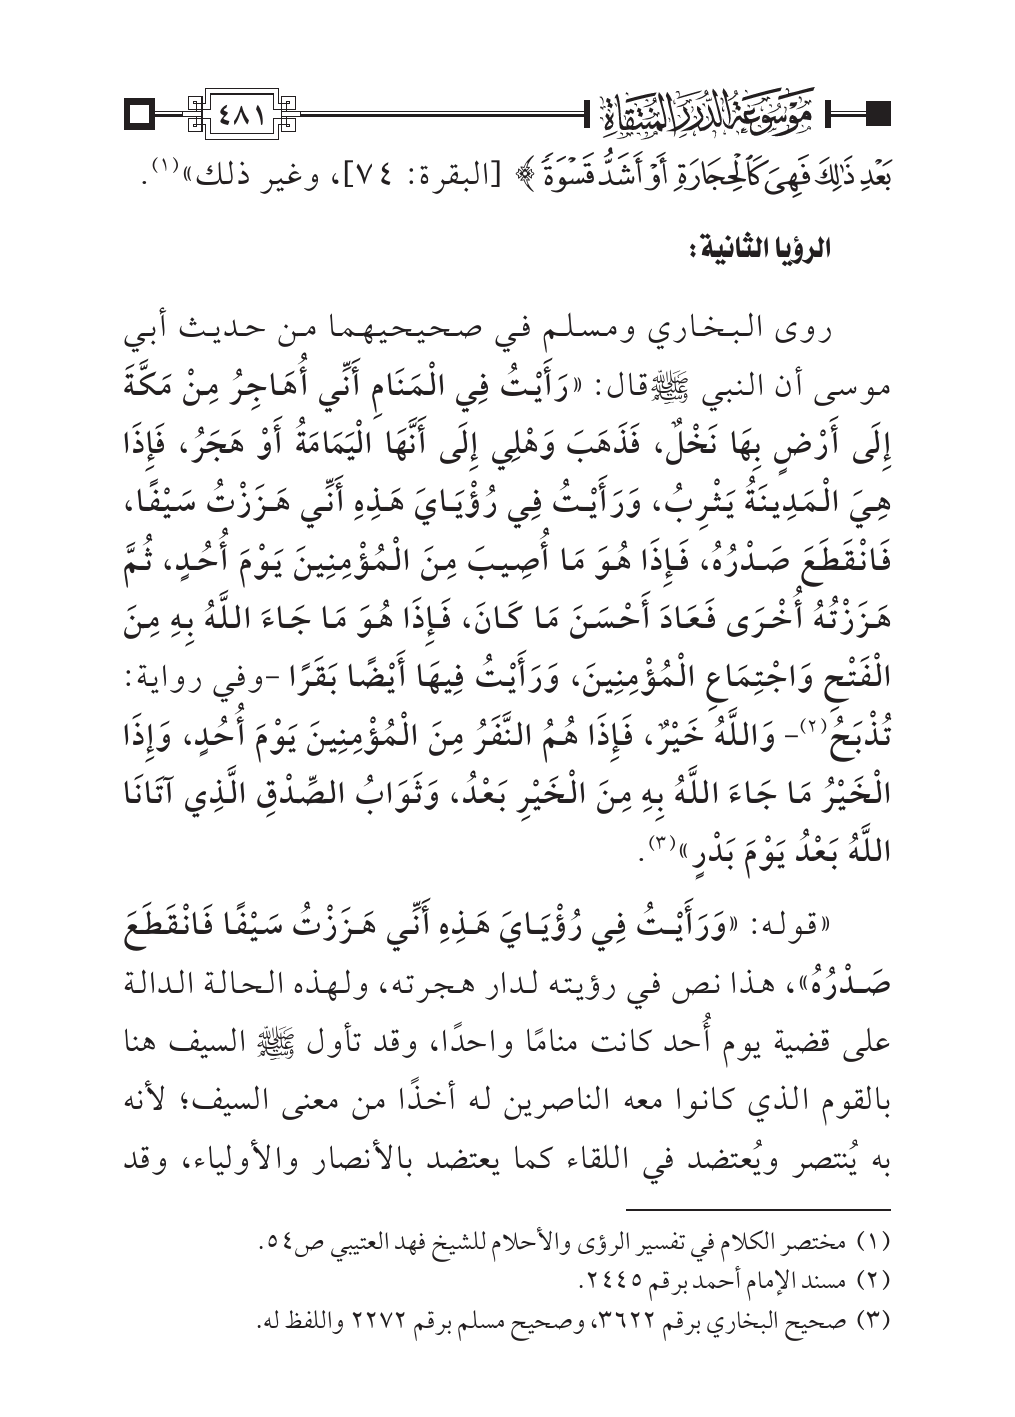 موسوعة الدرر المنتقاة
٤٨١
بَعْدِ ذَٰلِكَ فَهِىَ كَٱلْحِجَارَةِ أَوْ أَشَدُّ قَسْوَةً ﴾ [البقرة: ٧٤]، وغير ذلك»(١).
الرؤيا الثانية:
روى البخاري ومسلم في صحيحيهما من حديث أبي
موسى أن النبي ﷺ قال: «رَأَيْتُ فِي الْمَنَامِ أَنِّي أُهَاجِرُ مِنْ مَكَّةَ
إِلَى أَرْضٍ بِهَا نَخْلٌ، فَذَهَبَ وَهْلِي إِلَى أَنَّهَا الْيَمَامَةُ أَوْ هَجَرُ، فَإِذَا
هِيَ الْمَدِينَةُ يَثْرِبُ، وَرَأَيْتُ فِي رُؤْيَايَ هَذِهِ أَنِّي هَزَزْتُ سَيْفًا،
فَانْقَطَعَ صَدْرُهُ، فَإِذَا هُوَ مَا أُصِيبَ مِنَ الْمُؤْمِنِينَ يَوْمَ أُحُدٍ، ثُمَّ
هَزَزْتُهُ أُخْرَى فَعَادَ أَحْسَنَ مَا كَانَ، فَإِذَا هُوَ مَا جَاءَ اللَّهُ بِهِ مِنَ
الْفَتْحِ وَاجْتِمَاعِ الْمُؤْمِنِينَ، وَرَأَيْتُ فِيهَا أَيْضًا بَقَرًا -وفي رواية:
تُذْبَحُ(٢)- وَاللَّهُ خَيْرٌ، فَإِذَا هُمُ النَّفَرُ مِنَ الْمُؤْمِنِينَ يَوْمَ أُحُدٍ، وَإِذَا
الْخَيْرُ مَا جَاءَ اللَّهُ بِهِ مِنَ الْخَيْرِ بَعْدُ، وَثَوَابُ الصِّدْقِ الَّذِي آتَانَا
اللَّهُ بَعْدُ يَوْمَ بَدْرٍ»(٣).
«قوله: «وَرَأَيْتُ فِي رُؤْيَايَ هَذِهِ أَنِّي هَزَزْتُ سَيْفًا فَانْقَطَعَ
صَدْرُهُ»، هذا نص في رؤيته لدار هجرته، ولهذه الحالة الدالة
على قضية يوم أُحد كانت منامًا واحدًا، وقد تأول ﷺ السيف هنا
بالقوم الذي كانوا معه الناصرين له أخذًا من معنى السيف؛ لأنه
به يُنتصر ويُعتضد في اللقاء كما يعتضد بالأنصار والأولياء، وقد
(١) مختصر الكلام في تفسير الرؤى والأحلام للشيخ فهد العتيبي ص٥٤.
(٢) مسند الإمام أحمد برقم ٢٤٤٥.
(٣) صحيح البخاري برقم ٣٦٢٢، وصحيح مسلم برقم ٢٢٧٢ واللفظ له.